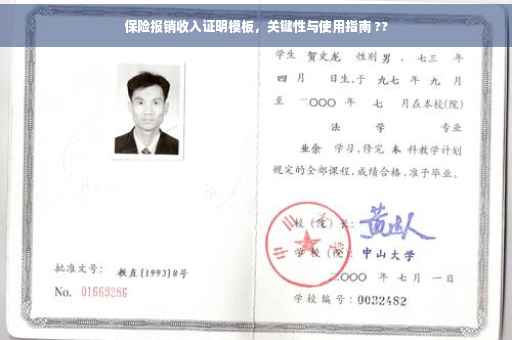 保险报销收入证明模板，关键性与使用指南 ??
学生 贺文龙 性别 男 ，七三 年
四 月 日生，于 九七 年 九 月
至 二〇〇〇 年 七 月在本校(院)
法 学 专业
业余 学习，修完 本 科教学计划
规定的全部课程，成绩合格，准予毕业。
校 (院) 长：
学 校 (院)： 中山大学
二〇〇〇 年 七 月 一 日
学校编号：0032482
批准文号： 教直[1993]8号
No. 01669286